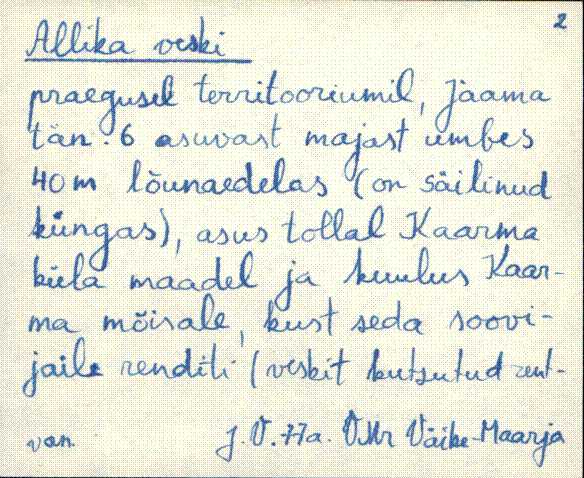 2
Allika veski
praegusel territooriumil, Jaama
tän. 6 asuvast majast umbes
40 m lõunaedelas (on säilinud
küngas), asus tollal Kaarma
küla maadel ja kuulus Kaar-
ma mõisale, kust seda soovi-
jaile renditi (veskit kutsutud rent-
van. J. V. 77a. VMr Väike-Maarja